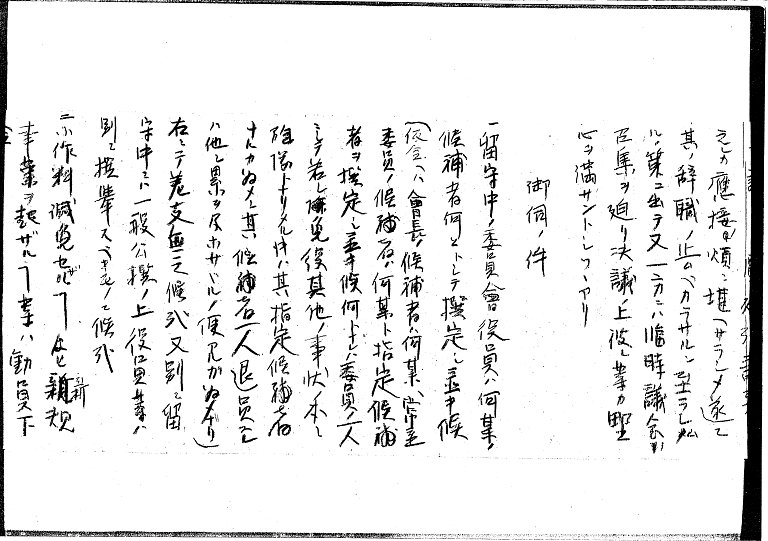 之カ應接ニ煩ニ堪ヘサラシメ遂ニ
其ノ辞職ノ止ムヘカラサルニ至ラシム
ルノ策ニ出テ又一方ニハ臨時議会
召集ヲ迫リ決議ノ上彼レ等カ野
心ヲ満サントシツヽアリ
御伺ノ件
一留守中ノ委員會役員ハ何某ノ
候補者何某トシテ撰定シ並キ候
(依会ハ會長ノ候補者ハ何某、常置
委員ノ候補者ハ何某ト指定候補
者ヲ撰定シ並キ候何トナレハ委員ノ一人
ニシテ若シ陳免役其他ノ事状ノ本ニ
除隊トナリタル時ハ其指定候補者
ナルカ為メニ其候補者一人退員シ
ハ他ニ累ヲ及ホサヾルノ便アルカ為メナリ)
右ニテ差支無之候哉又別ニ留
守中ニハ一般公撰ノ上役員等ハ
別ニ撰挙スヘキモノニ候哉
二小作料減免セザルヿ 並ニ新規
事業ヲ起ザルヿ等ハ動員下